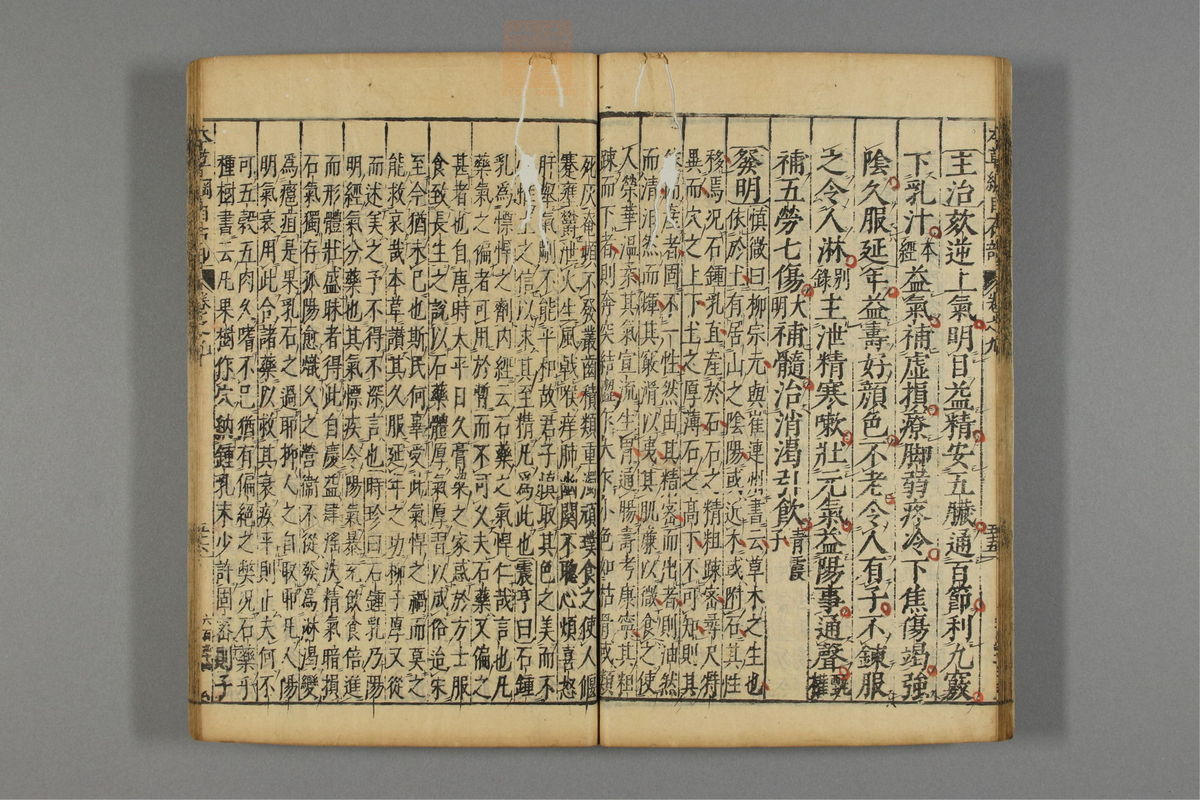 主治欬逆上氣明目益精安五臟通百節利九竅
下乳汁本經益氣補虛損療脚弱疼冷下焦傷竭強
陰久服延年益壽好顏色不老令人有子不鍊服
之令人淋別錄主泄精寒嗽壯元氣益陽事通聲甄權
補五勞七傷大明補髓治消渴引飲青霞子
發明慎微曰柳宗元與崔連州書云草木之生也
依於土有居山之陰陽或近木或附石其性
移焉況石鍾乳直產於石石之精粗踈密尋尺特
異而穴之上下土之厚薄石之高下不可知則其
依而產者固不一性然由其精密而出者則油然
而清炯然而輝其竅滑以夷其肌廉以微食之使
人榮華溫柔其氣宣流生胃通腸壽考康寧其粗
踈而下者則奔突結澀乍大乍小色如枯骨或類
死灰奄顇不發叢齒積類重濁頑璞食之使人偃
蹇壅鬱泄火生風戟喉痒肺幽關不聰心煩喜怒
肝舉氣剛不能平和故君子慎取其色之美而不
必唯土之信以求其至精凡為此也震亨曰石鍾
乳為慓悍之劑內經云石藥之氣悍仁哉言也凡
藥氣之偏者可用於暫而不可久夫石藥又偏之
甚者也自唐時太平日久膏粱之家惑於方士服
食致長生之說以石藥體厚氣厚習以成俗迨宋
至今猶未已也斯民何辜受此氣悍之禍而莫之
能救哀哉本草讚其久服延年之功柳子厚又從
而述美之予不得不深言也時珍曰石鍾乳乃陽
明經氣分藥也其氣慓疾令陽氣暴充飲食倍進
而形體壯盛昧者得此自慶益肆搖泆精氣暗損
石氣獨存孤陽愈熾久之營衛不從發為淋渴變
為癰疽是果乳石之過耶抑人之自取耶凡人陽
明氣衰用此合諸藥以救其衰疾平則止夫何不
可五穀五肉久嗜不已猶有偏絕之弊況石藥乎
種樹書云凡果樹作穴納鍾乳末少許固密則子